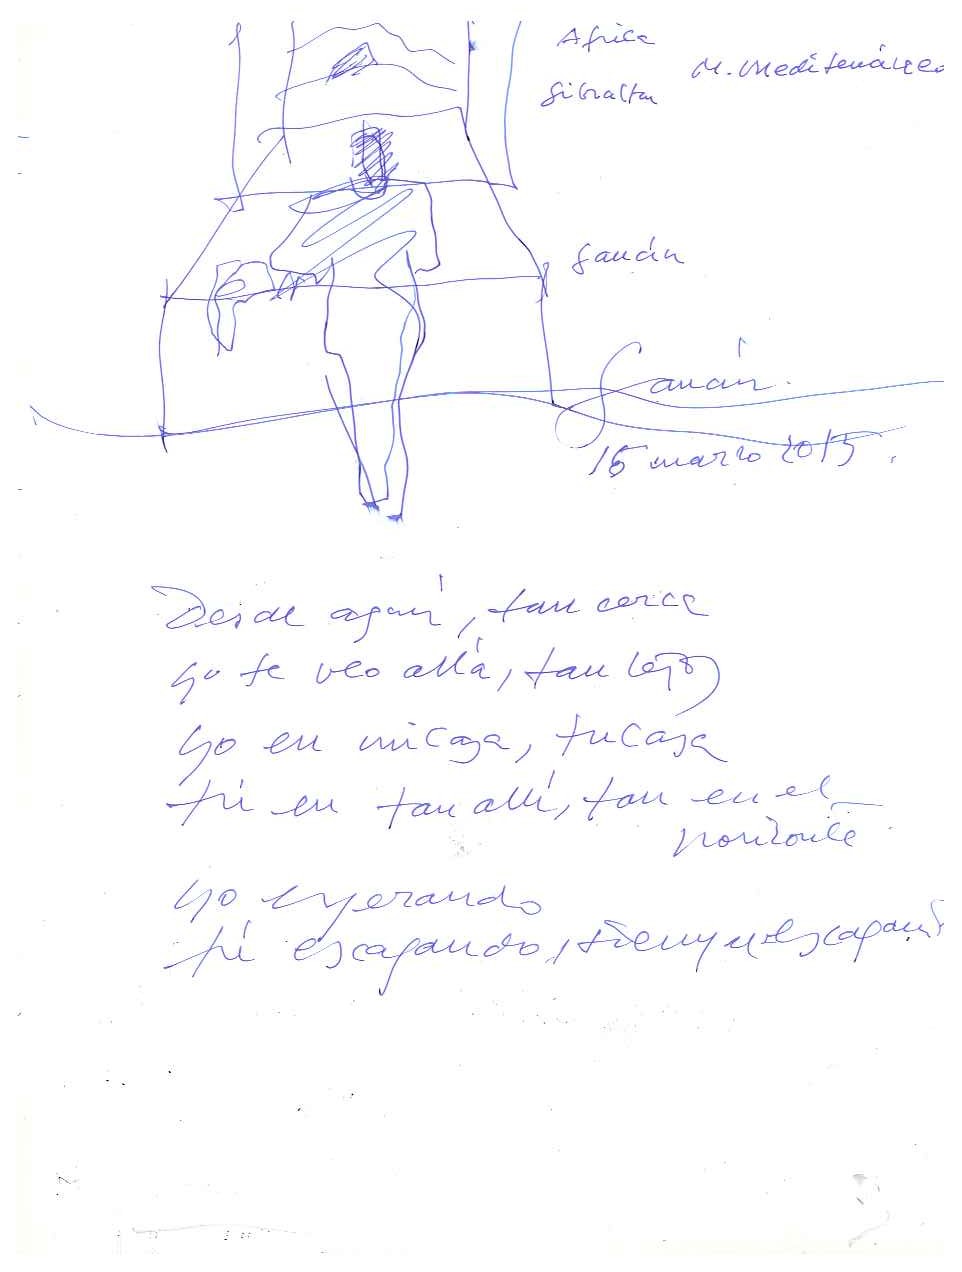 Africa
M. Mediterráneo
Gibraltar
Gaucín
Gaucín.
16 marzo 2015.
Desde aquí, tan cerca
yo te veo allá, tan lejos
yo en mi casa, tu casa
tú en tan allí, tan en el
horizonte
yo esperando
tú escapando, siempre escapando